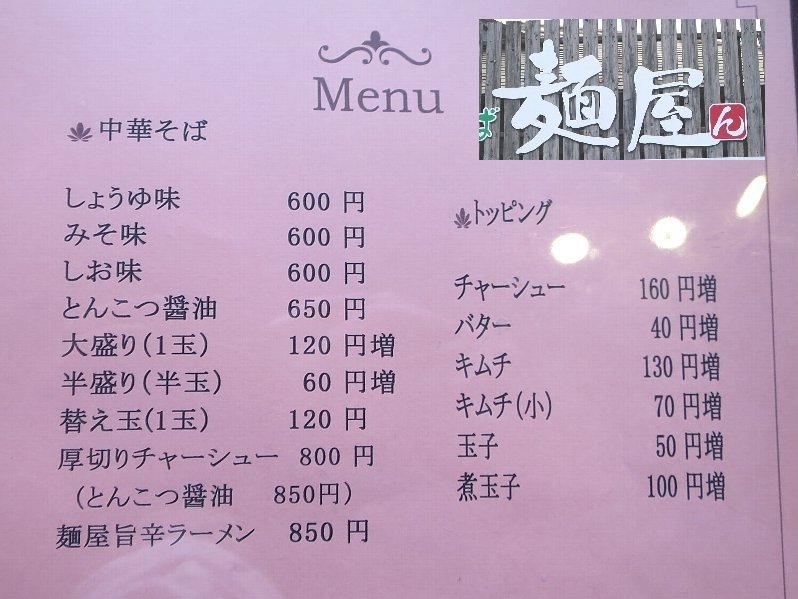 Menu
ば 麺屋 ん
中華そば
しょうゆ味 600 円
みそ味 600 円
しお味 600 円
とんこつ醤油 650 円
大盛り(1玉) 120 円増
半盛り(半玉) 60 円増
替え玉(1玉) 120 円
厚切りチャーシュー 800 円
(とんこつ醤油 850円)
麺屋旨辛ラーメン 850 円
トッピング
チャーシュー 160 円増
バター 40 円増
キムチ 130 円増
キムチ(小) 70 円増
玉子 50 円増
煮玉子 100 円増